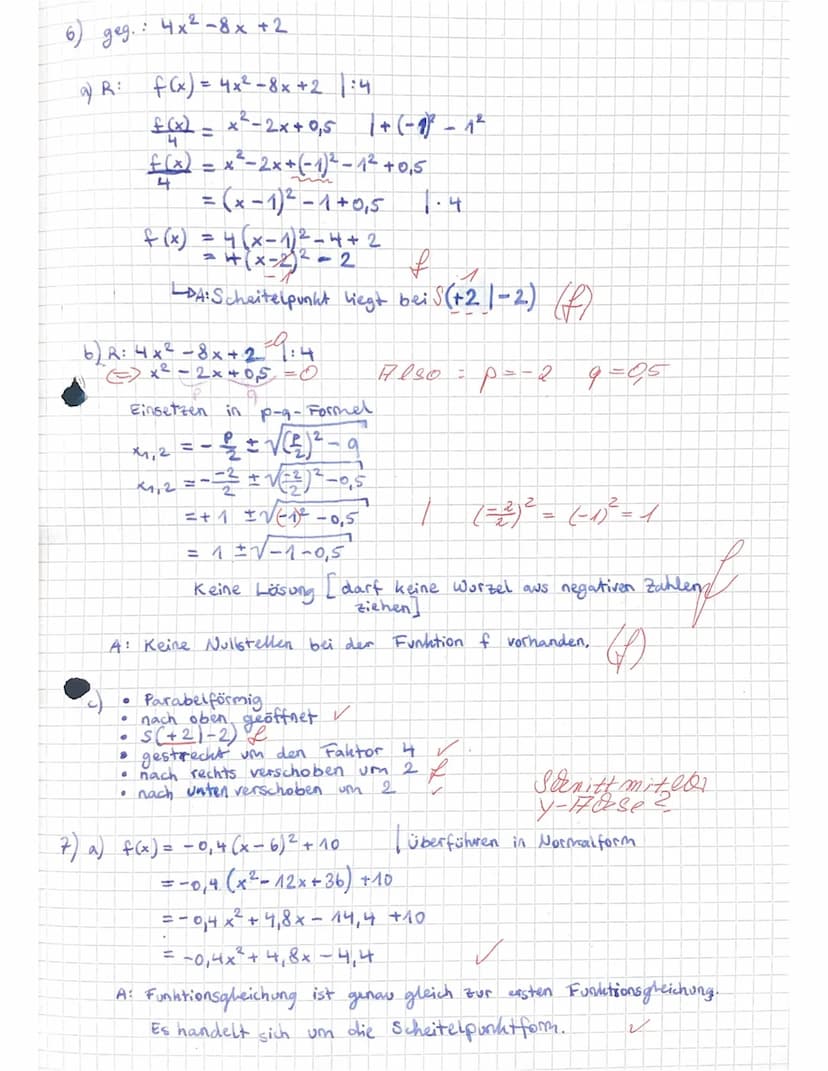 6) geg.: 4x² - 8x + 2
a) R: f(x) = 4x² - 8x + 2 | :4
f(x)/4 = x² - 2x + 0,5 | + (-1)² - 1²
f(x)/4 = x² - 2x + (-1)² - 1² + 0,5
= (x - 1)² - 1 + 0,5 | · 4
f(x) = 4(x - 1)² - 4 + 2
= 4(x - 2)² - 2 f
-1 -1
↳ A: Scheitelpunkt liegt bei S(+2 | -2) (f)
b) R: 4x² - 8x + 2 =0 | :4
(⇔) x² - 2x + 0,5 = 0 Also : p = -2 q = 0,5
p q
Einsetzen in p-q-Formel
x1,2 = - p/2 ± √((p/2)² - q)
x1,2 = - -2/2 ± √((-2/2)² - 0,5)
= +1 ± √((-1)² - 0,5) | (-2/2)² = (-1)² = 1
= 1 ± √(-1 - 0,5)
Keine Lösung [darf keine Wurzel aus negativen Zahlen f
ziehen]
A: Keine Nullstellen bei der Funktion f vorhanden. (f)
c) • Parabelförmig
• nach oben geöffnet ✓
• S(+2|-2) f
• gestreckt um den Faktor 4 ✓
• nach rechts verschoben um 2 f
• nach unten verschoben um 2 ✓
Schnitt mit der
y-Achse?
7) a) f(x) = -0,4(x - 6)² + 10 | Überführen in Normalform
= -0,4 (x² - 12x + 36) + 10
= -0,4x² + 4,8x - 14,4 + 10
= -0,4x² + 4,8x - 4,4 ✓
A: Funktionsgleichung ist genau gleich zur ersten Funktionsgleichung.
Es handelt sich um die Scheitelpunktform. ✓